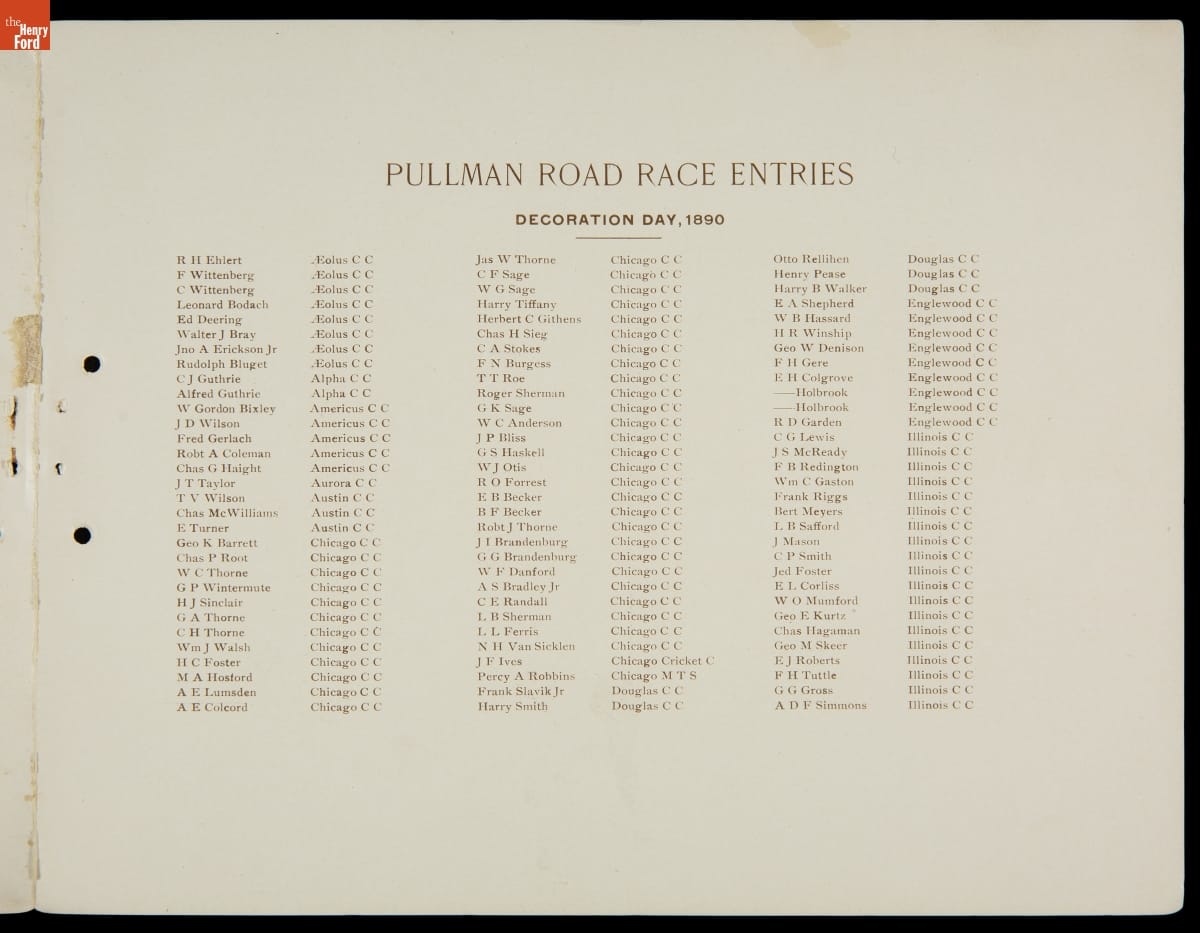 the
Henry
Ford
PULLMAN ROAD RACE ENTRIES
DECORATION DAY, 1890
R H Ehlert Æolus C C
F Wittenberg Æolus C C
C Wittenberg Æolus C C
Leonard Bodach Æolus C C
Ed Deering Æolus C C
Walter J Bray Æolus C C
Jno A Erickson Jr Æolus C C
Rudolph Bluget Æolus C C
C J Guthrie Alpha C C
Alfred Guthrie Alpha C C
W Gordon Bixley Americus C C
J D Wilson Americus C C
Fred Gerlach Americus C C
Robt A Coleman Americus C C
Chas G Haight Americus C C
J T Taylor Aurora C C
T V Wilson Austin C C
Chas McWilliams Austin C C
E Turner Austin C C
Geo K Barrett Chicago C C
Chas P Root Chicago C C
W C Thorne Chicago C C
G P Wintermute Chicago C C
H J Sinclair Chicago C C
G A Thorne Chicago C C
C H Thorne Chicago C C
Wm J Walsh Chicago C C
H C Foster Chicago C C
M A Hosford Chicago C C
A E Lumsden Chicago C C
A E Colcord Chicago C C
Jas W Thorne Chicago C C
C F Sage Chicago C C
W G Sage Chicago C C
Harry Tiffany Chicago C C
Herbert C Githens Chicago C C
Chas H Sieg Chicago C C
C A Stokes Chicago C C
F N Burgess Chicago C C
T T Roe Chicago C C
Roger Sherman Chicago C C
G K Sage Chicago C C
W C Anderson Chicago C C
J P Bliss Chicago C C
G S Haskell Chicago C C
W J Otis Chicago C C
R O Forrest Chicago C C
E B Becker Chicago C C
B F Becker Chicago C C
Robt J Thorne Chicago C C
J I Brandenburg Chicago C C
G G Brandenburg Chicago C C
W F Danford Chicago C C
A S Bradley Jr Chicago C C
C E Randall Chicago C C
L B Sherman Chicago C C
L L Ferris Chicago C C
N H Van Sicklen Chicago C C
J F Ives Chicago Cricket C
Percy A Robbins Chicago M T S
Frank Slavik Jr Douglas C C
Harry Smith Douglas C C
Otto Rellihen Douglas C C
Henry Pease Douglas C C
Harry B Walker Douglas C C
E A Shepherd Englewood C C
W B Hassard Englewood C C
H R Winship Englewood C C
Geo W Denison Englewood C C
F H Gere Englewood C C
E H Colgrove Englewood C C
——Holbrook Englewood C C
——Holbrook Englewood C C
R D Garden Englewood C C
C G Lewis Illinois C C
J S McReady Illinois C C
F B Redington Illinois C C
Wm C Gaston Illinois C C
Frank Riggs Illinois C C
Bert Meyers Illinois C C
L B Safford Illinois C C
J Mason Illinois C C
C P Smith Illinois C C
Jed Foster Illinois C C
E L Corliss Illinois C C
W O Mumford Illinois C C
Geo E Kurtz Illinois C C
Chas Hagaman Illinois C C
Geo M Skeer Illinois C C
E J Roberts Illinois C C
F H Tuttle Illinois C C
G G Gross Illinois C C
A D F Simmons Illinois C C